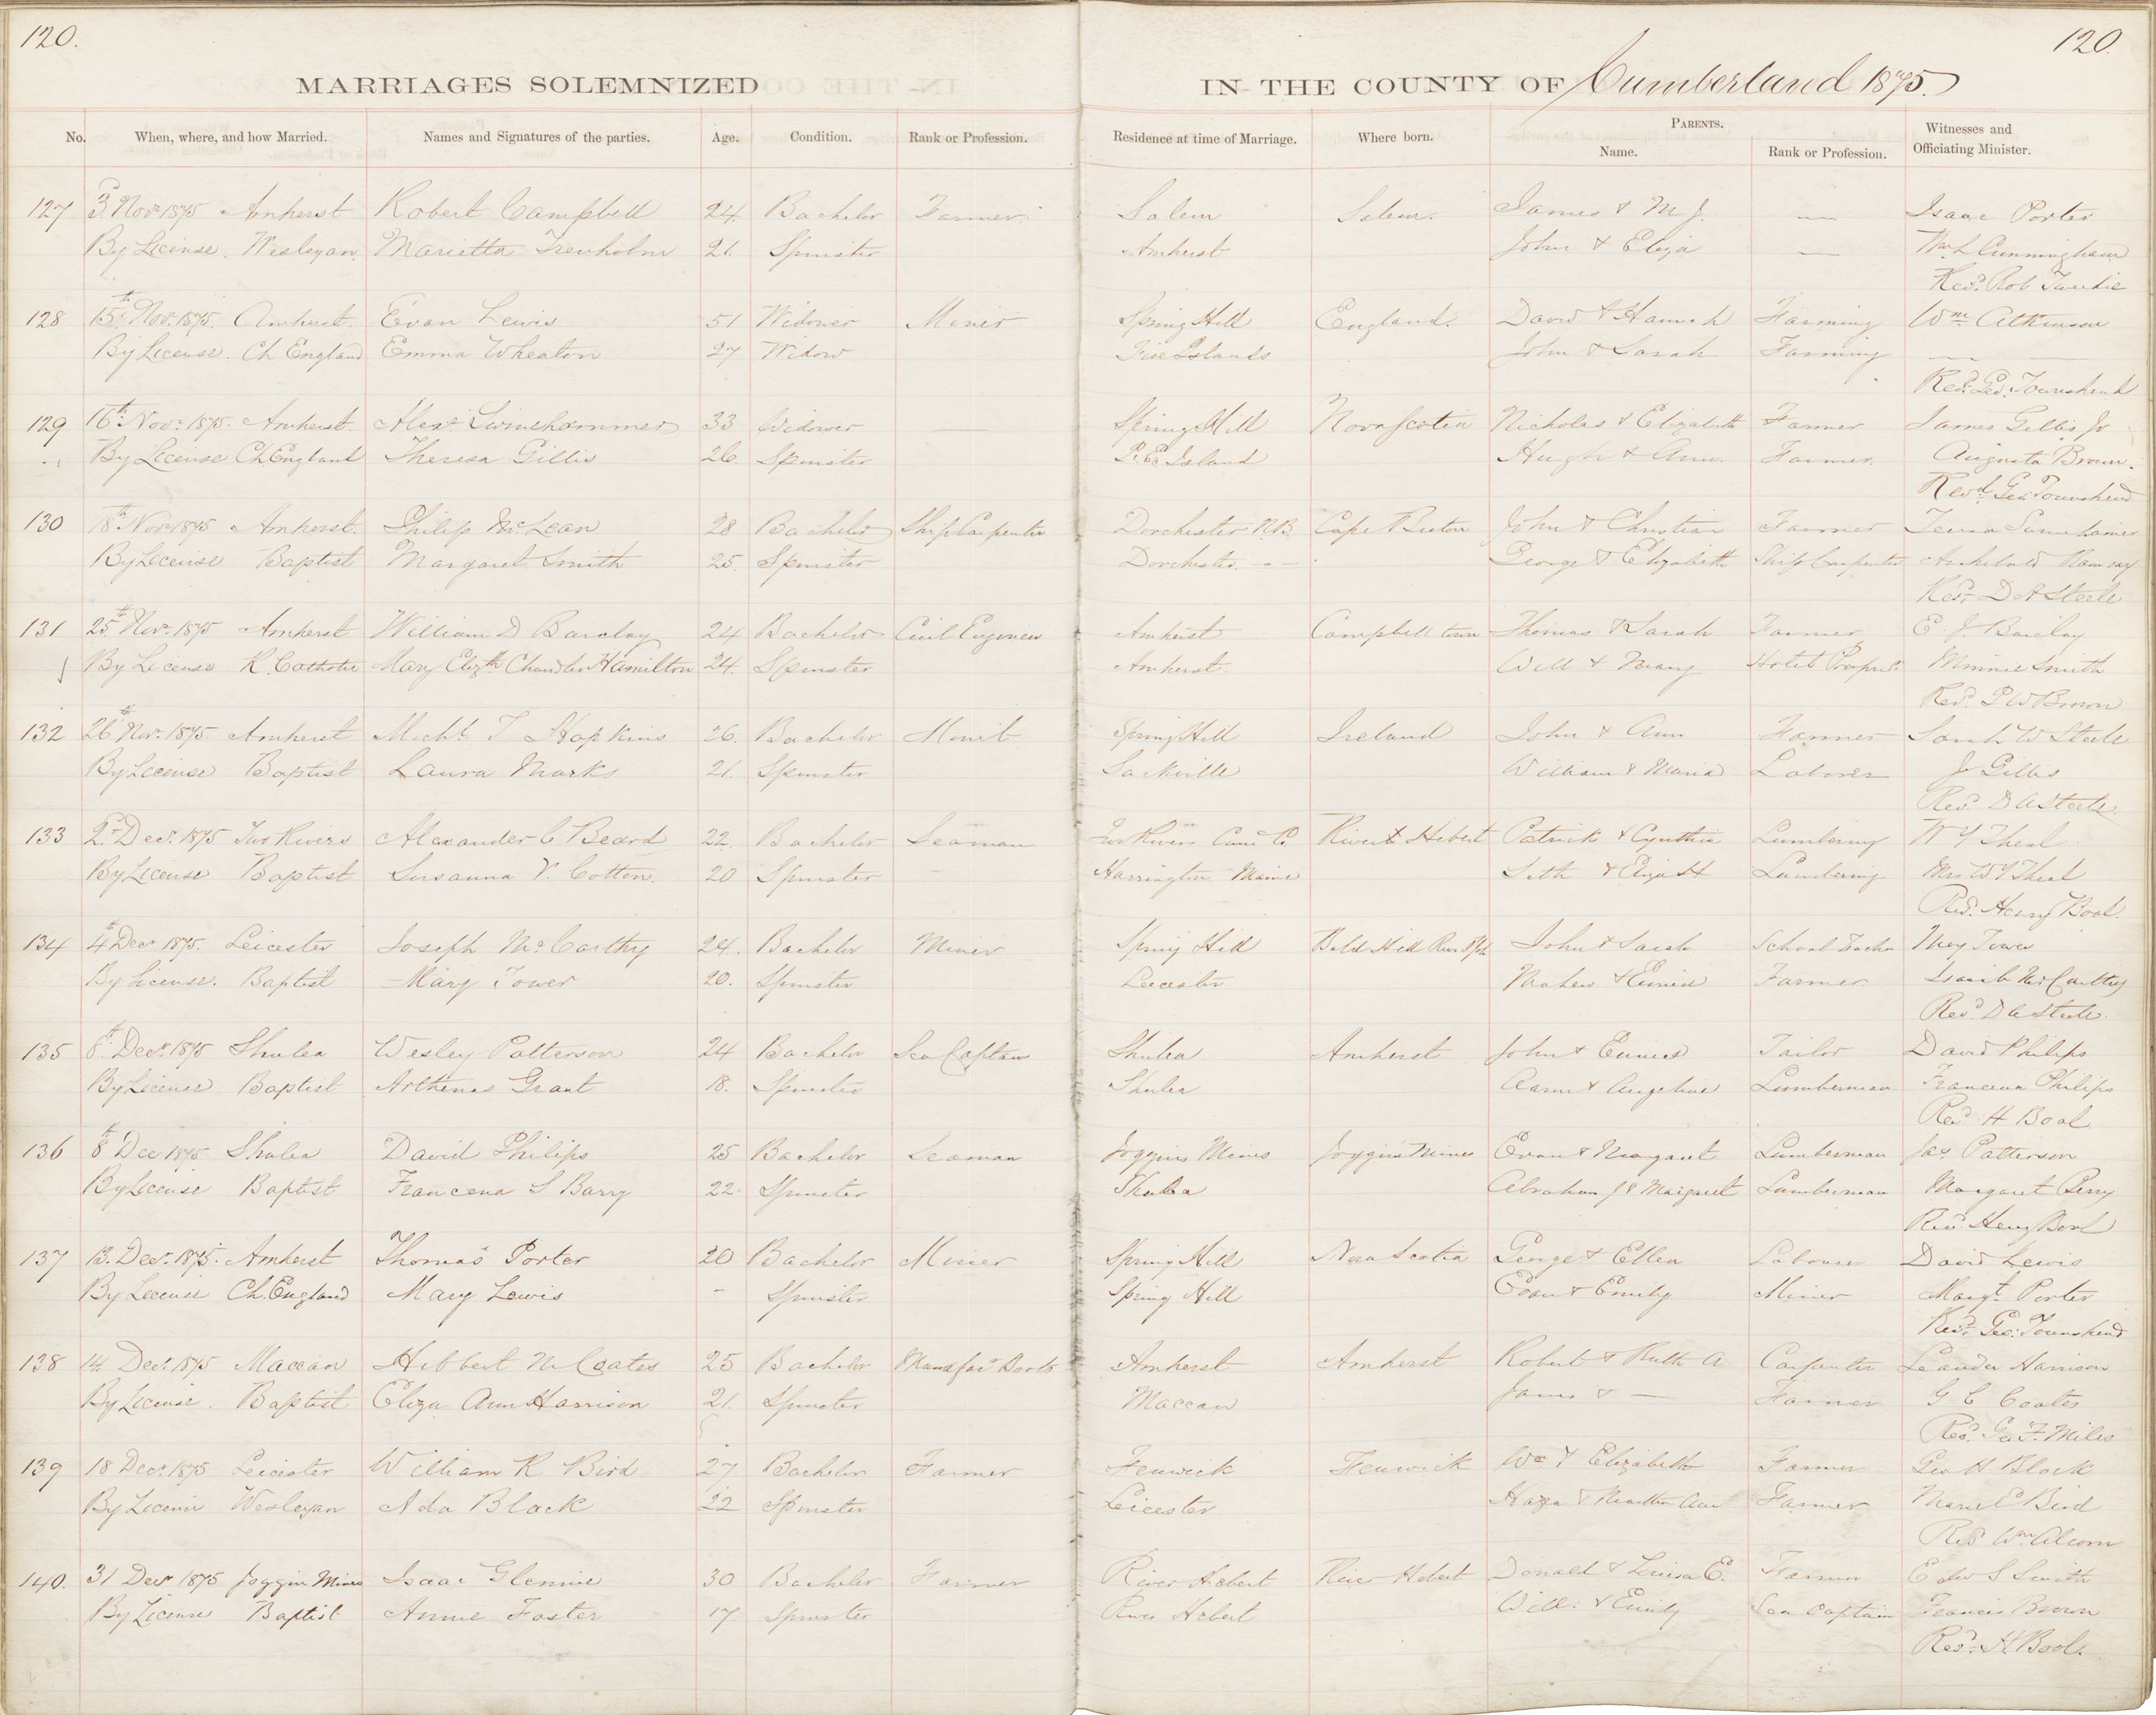 120. 120.
MARRIAGES SOLEMNIZED IN THE COUNTY OF Cumberland 1875.
PARENTS.
No. When, where, and how Married. Names and Signatures of the parties. Age. Condition. Rank or Profession. Residence at time of Marriage. Where born. Name. Rank or Profession. Witnesses and Officiating Minister.
127 3 Novr 1875 Amherst Robert Campbell 24 Bachelor Farmer Salem Salem. James & M J. — Isaac Porter
By License. Wesleyan Marietta Trenholm 21. Spinster Amherst John & Eliza — Wm L Cunningham
Revd. Rob Tweedie
128 15th Nov. 1875. Amherst. Evan Lewis 51 Widower Miner Spring Hill England. David & Hannah Farming Wm Atkinson
By License. Ch England Emma Wheaton 27 Widow Islands John & Sarah Farming — —
Revd. Geo. Townshend
129 16th Novr 1875. Amherst. Alexr Swinehammer 33 Widower — Spring Hill Nova Scotia Nicholas & Elizabeth Farmer James Gillis Jr
By License Ch England Theresa Gillis 26. Spinster P. Ed. Island Hugh & Ann. Farmer. Augusta Brown.
Revd Geo Townshend
130 18th Novr 1875 Amherst. Philip McLean 28 Bachelor Ship Carpenter Dorchester N.B. Cape Breton John & Christian Farmer
By License Baptist Margaret Smith 25. Spinster Dorchester. - - - George & Elizabeth Ship Carpenter Archibald Ramsay
Revd. D A Steele
131 25th Novr 1875 Amherst William D Barclay 24 Bachelor Civil Engineer Amherst Campbell town Thomas & Sarah Farmer E. J. Barclay
By License R. Catholic Mary Elizth Chandler Hamilton 24. Spinster Amherst. Will & Mary Hotel Proprr. Minnie Smith
Revd. P W Brown
132 26th Nov. 1875 Amherst Michl. T Hopkins 26. Bachelor Spring Hill Ireland John & Ann Farmer Sarah W Steele
By License Baptist Laura Marks 21. Spinster Sackville William & Maria Laborer J Gillis
Revd. D A Steele.
133 2d Decr. 1875 Two Rivers Alexander C Beard 22. Bachelor Seaman Two Rivers Cum Co. River Hebert Patrick & Cynthia Lumbering W Y Theal
By License Baptist Susanna V. Cotton. 20 Spinster Harrington Maine Seth & Eliza H Lumbering Mrs W Y Theal
Revd. Henry Bool.
134 4th Decr 1875. Leicester Joseph McCarthy 24. Bachelor Miner Spring Hill John & Sarah School Teacher Tower
By License. Baptist Mary Tower 20. Spinster Leicester & Farmer McCarthy
Revd D A Steele.
135 8th Decr. 1875 Shulea Wesley Patterson 24 Bachelor Sea Captain Shulea Amherst John & Eunice Tailor David Philips
By License Baptist Arthenas Grant 18. Spinster Shulea Aaron & Angeline Lumberman Francena Philips
Revd. H Bool
136 8th Dec 1875 Shulea David Philips 25 Bachelor Seaman Joggins Mines Joggins Mines Evan & Margaret Lumberman Jas Patterson
By License Baptist Francena S Barry 22. Spinster Shulea Abraham J & Margaret Lumberman Margaret Perry
Revd. Henry Bool
137 13. Decr. 1875. Amherst Thomas Porter 20 Bachelor Miner Spring Hill Nova Scotia George & Ellen Labourer David Lewis
By License Ch. England Mary Lewis - Spinster Spring Hill Evan & Emily Miner Margt. Porter
Revd. Geo. Townshend
138 14 Decr. 1875 Maccan Hibbert N Coates 25 Bachelor Manufacr Boots Amherst Amherst Robert & Ruth A Carpenter Leander Harrison
By License. Baptist Eliza Ann Harrison 21. Spinster Maccan James & — Farmer G C Coates
Revd. Geo F. Miles
139 18 Decr. 1875 Leicester William R Bird 27 Bachelor Farmer Fenwick Fenwick Wm & Elizabeth Farmer Geo H Black
By License Wesleyan Ada Black 22 Spinster Leicester & Martha Ann Farmer Bird
Revd Wm Alcorn
140. 31 Decr 1875 Joggin Mines Isaac Glennie 30 Bachelor Farmer River Hebert River Hebert Donald & Louisa E. Farmer S Smith
By License Baptist Annie Foster 17. Spinster River Hebert Will. & Emily Sea Captain Francis Brown
Revd. H. Bool.